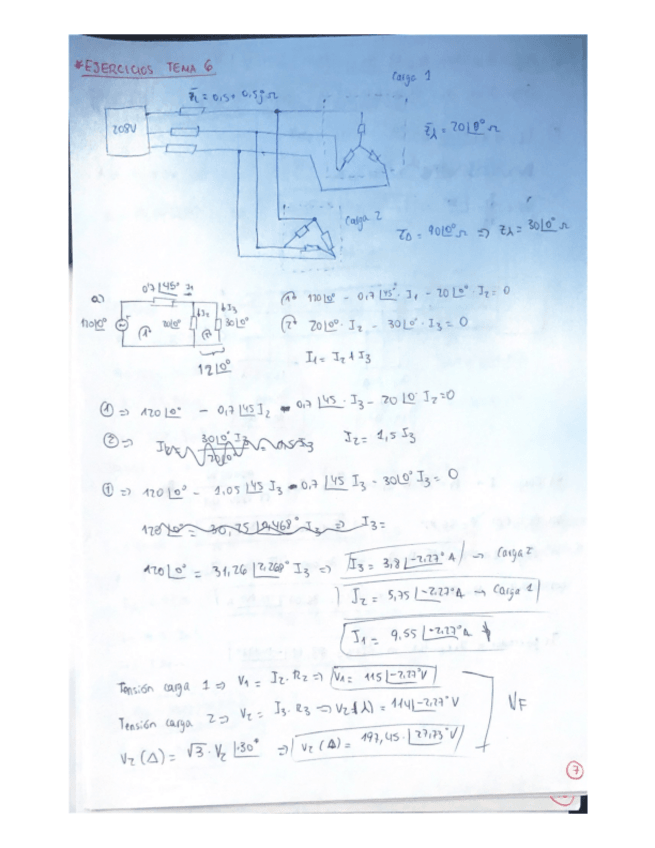 *EJERCICIOS TEMA 6
Carga 1
Z̄L = 0,5 + 0,5j Ω
208V
Z̄⅄ = 20∠0° Ω
Carga 2
Z̄Δ = 90∠0° Ω ⇒ Z⅄ = 30∠0° Ω
a)
0,7∠45° I1
120∠0°
1
20∠0°
↓I2
2
↓I3
30∠0°
12∠0°
1 120∠0° - 0,7∠45° · I1 - 20∠0° · I2 = 0
2 20∠0° · I2 - 30∠0° · I3 = 0
I1 = I2 + I3
① ⇒ 120∠0° - 0,7∠45 I2 - 0,7∠45 · I3 - 20∠0 · I2 = 0
② ⇒ I2 = 30∠0° I3 / 20∠0° I2 = 1,5 I3
① ⇒ 120∠0° - 1,05∠45 I3 - 0,7∠45 I3 - 30∠0° I3 = 0
120∠0° = I3 ⇒ I3 =
120∠0° = 31,26∠2,268° I3 ⇒ I3 = 3,8∠-2,27° A → Carga 2
I2 = 5,75∠-2,27° A → Carga 1
I1 = 9,55∠-2,27° A
Tensión carga 1 ⇒ V1 = I2 · R2 ⇒ V1 = 115∠-2,27° V
Tensión carga 2 ⇒ V2 = I3 · R3 ⇒ V2(⅄) = 114∠-2,27° V
VF
V2 (Δ) = √3 · V2 ∠30° ⇒ V2 (Δ) = 197,45 · ∠27,73° V
7